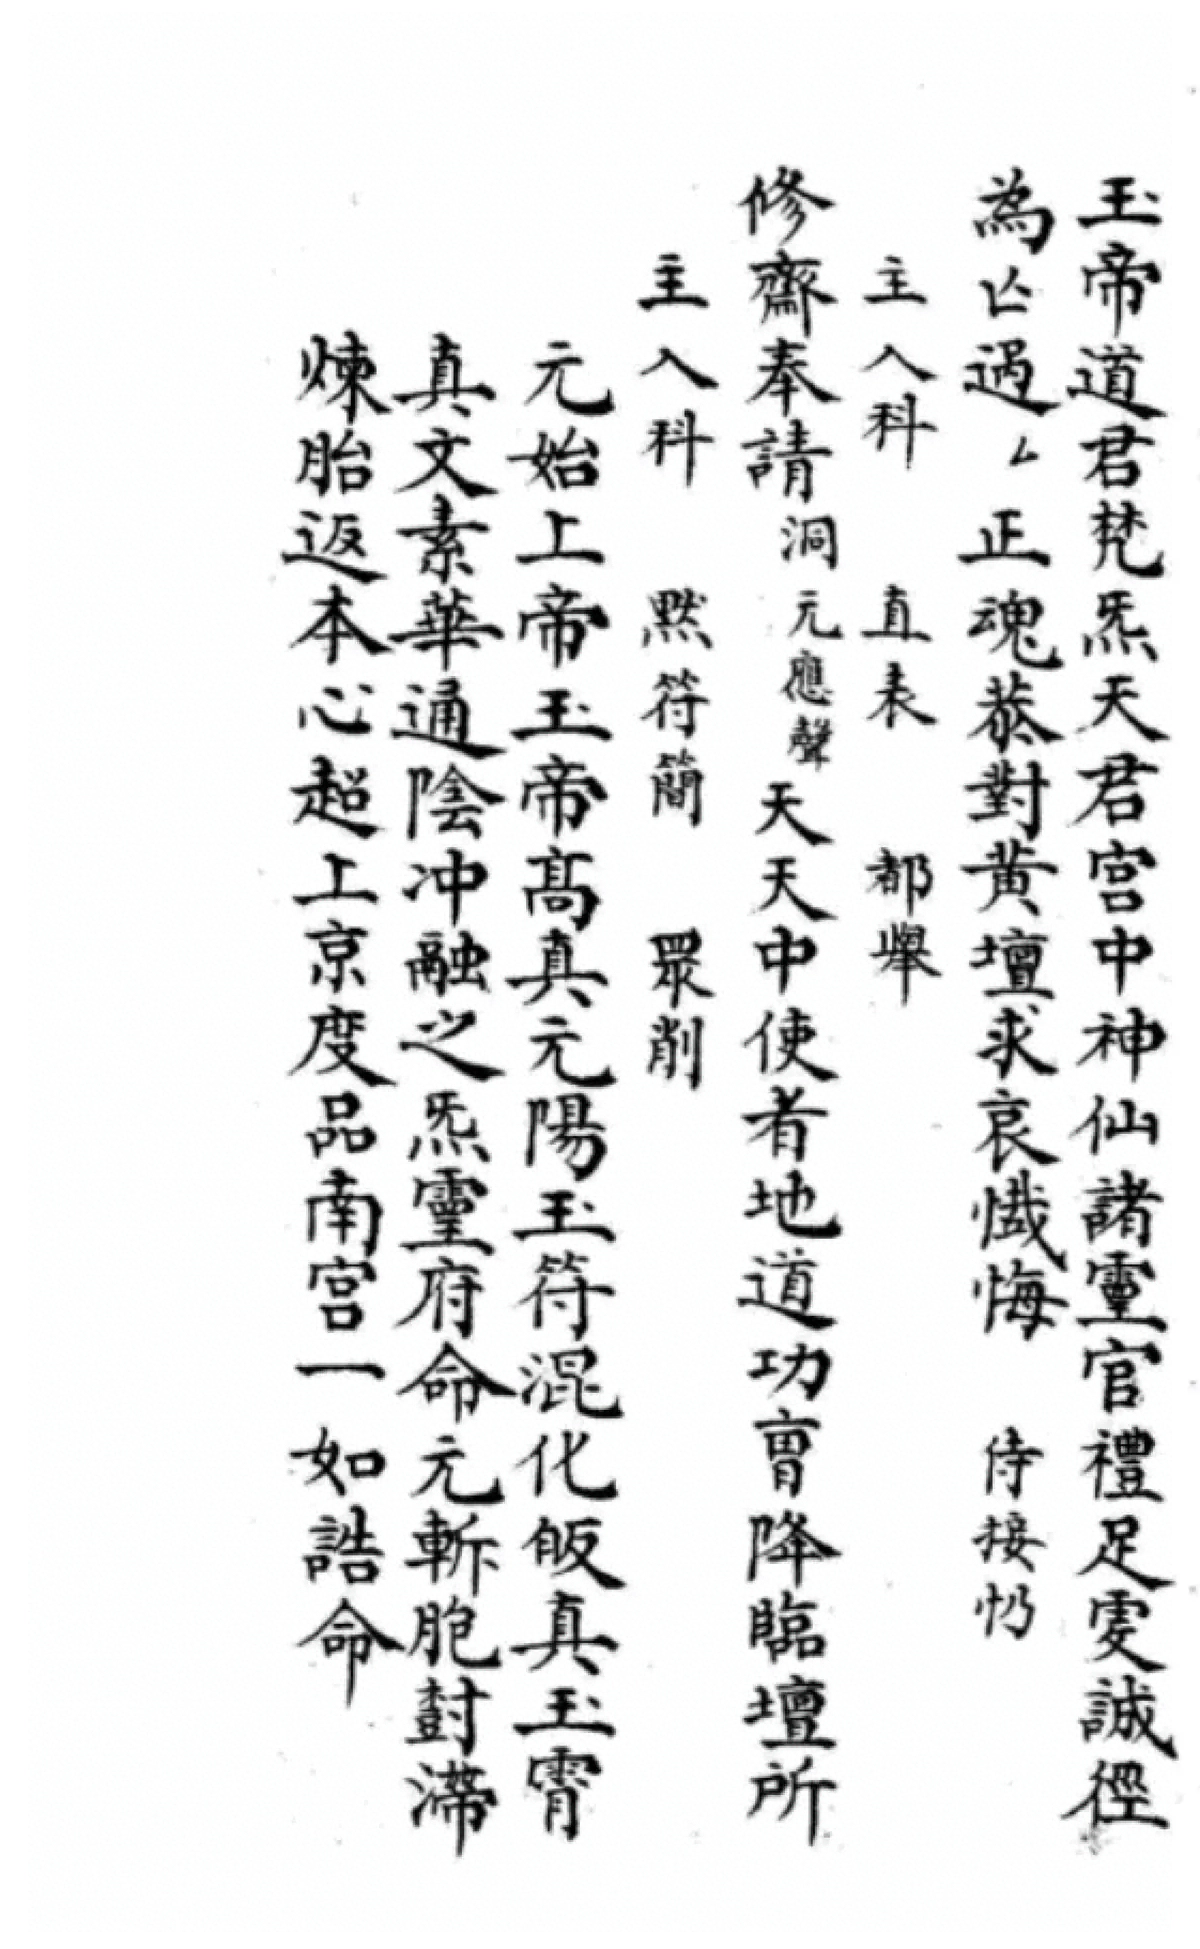 玉帝道君梵炁天君宫中神仙諸靈官禮足虔誠徑
為亡過ム正魂恭對黄壇求哀懴悔 侍接
主入科 直表 都舉
修齋奉請洞元應聲天天中使者地道功曺降臨壇所
主入科 黙符簡 眾削
元始上帝玉帝髙真元陽玉符混化皈真玉霄
真文素華通陰冲融之炁靈府命元斬胞封滯
煉胎返本心超上京度品南宫一如誥命